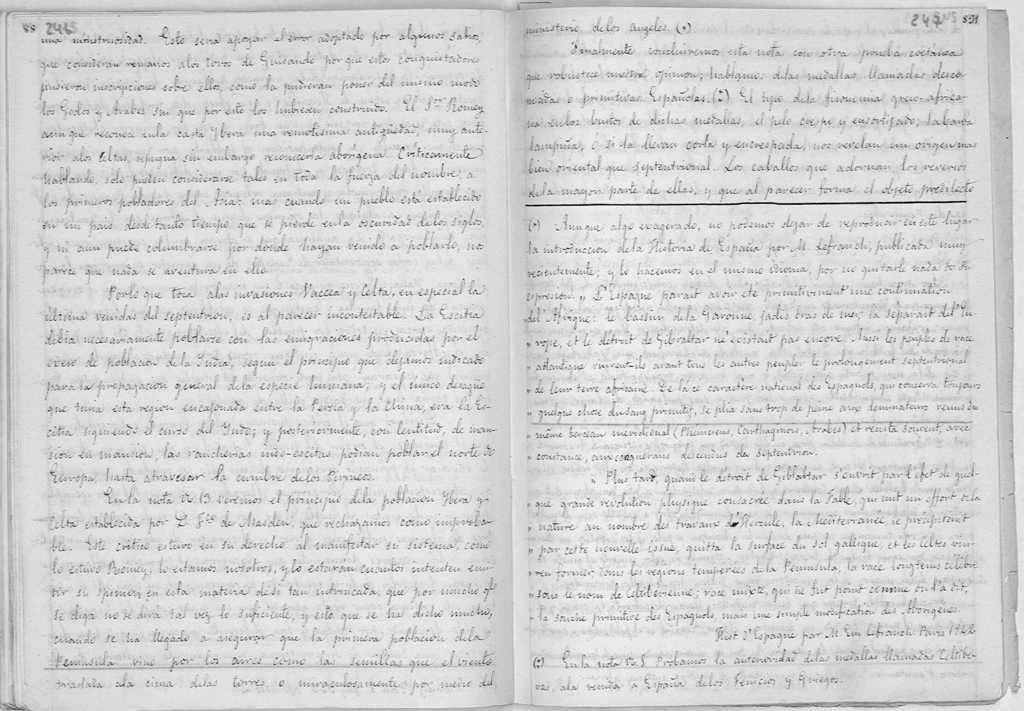 88 246
una monstruosidad. Esto sería apoyar el error adoptado por algunos sabios,
que consideran romanos a los toros de Guisando por que estos conquistadores
pusieron inscripciones sobre ellos, como la pudieran poner del mismo modo
los Godos y Arabes sin que por esto los hubiesen construido. El Sr. Romey
aun que reconoce en la casta Ybera una remotisima antigüedad, muy ante-
rior a los Celtas, repugna sin embargo reconocerla aborigena. Criticamente
hablando, solo pueden considerarse tales en toda la fuerza del nombre, a
los primeros pobladores del Asia: mas cuando un pueblo está establecido
en un pais desde tanto tiempo que se pierde en la oscuridad de los siglos,
y ni aun puede columbrarse por donde hayan venido a poblarlo, nos
parece que nada se aventura en ello.
Por lo que toca a las invasiones Vaccea y Celta, en especial la
ultima venidas del septentrion, es al parecer incontestable. La Escitia
debia necesariamente poblarse con las emigraciones producidas por el
exceso de poblacion de la Yndia, segun el principio que dejamos indicado
para la propagacion general de la especie humana; y el único desagüe
que tenia esta region encajonada entre la Persia y la China, era la Es-
citia siguiendo el curso del Yndo; y posteriormente, con lentitud, de man-
sion en mansion, las rancherias indo-escitas podian poblar el norte de
Europa, hasta atravesar la cumbre de los Pirineos.
En la nota Nº 13 veremos el principio de la poblacion Ybera y
Celta establecida por D. Fco de Masdeu, que rechazamos como improba-
ble. Este critico estuvo en su derecho al manifestar su sistema, como
lo estuvo Romey, lo estamos nosotros, y lo estaran cuantos intenten emi-
tir su opinion en esta materia de si tan intrincada, que por mucho que
se diga no se dirá tal vez lo suficiente, y esto que se ha dicho mucho,
cuando se ha llegado a asegurar que la primera poblacion de la
Peninsula vino por los aires como las semillas que el viento
traslada a la cima de las torres, o miraculosamente por medio del
247 89
ministerio de los angeles. (·)
Finalmente concluiremos esta nota con otra prueba coetanea
que robustece nuestra opinion; hablamos de las medallas llamadas desco-
nocidas o primitivas Españolas. (:) El tipo de la fisonomia greco-africa-
na en los bustos de dichas medallas, el pelo crespo y ensortijado, la barba
lampiña, o si la llevan corta y encrespada, nos revelan un origen mas
bien oriental que septentrional. Los caballos que adornan los reversos
de la mayor parte de ellas, y que al parecer forma el objeto predilecto
(·) Aunque algo exagerado, no podemos dejar de reproducir en este lugar
la introduccion de la Historia de España por M. Lefranch, publicada muy
recientemente; y lo hacemos en el mismo idioma, por no quitarle nada de su
espresion. „ L'Espagne parait avoir été primitivement une continuation
„ de l'Afrique: le bassin de la Garonne, jadis bras de mer, la séparait de l'Eu-
„ rope, et le détroit de Gibraltar n'existait pas encore. Aussi les peuples de race
„ atlantique vinrent-ils avant tous les autres peupler le prolongement septentrional
„ de leur terre africaine. De là ce caractère national des Espagnols, qui conserva toujours
„ quelque chose du sang primitif, se plia sans trop de peine aux dominateurs venus du
„ même berceau meridional (Phéniciens, Carthaginois, Arabes) et resista souvent, avec
„ constance, aux conquerans descendus du septentrion.
„ Plus tard, quand le détroit de Gibraltar s'ouvrit par l'efet de quel-
„ que grande revolution physique consacrée dans la Fable, qui mit un effort de la
„ nature au nombre des travaux d'Hercule, la Mediterranée, se précipitant
„ par cette nouvelle issue, quitta la surface du sol gallique, et les Celtes vin-
„ rent former, dans les regions temperées de la Peninsula, la race longtems célebre
„ sous le nom de Celtiberienne; race mixte, qui ne fut point comme on l'a dit,
„ la souche primitive des Espagnols, mais une simple modification des Aborigenes.
Hist. d'Espagne par M. Em. Lefranch. Paris 1842
(:) En la nota Nº 8 Probamos la anterioridad de las medallas llamadas Celtibe-
ras, a la venida a España de los Fenicios y Griegos.